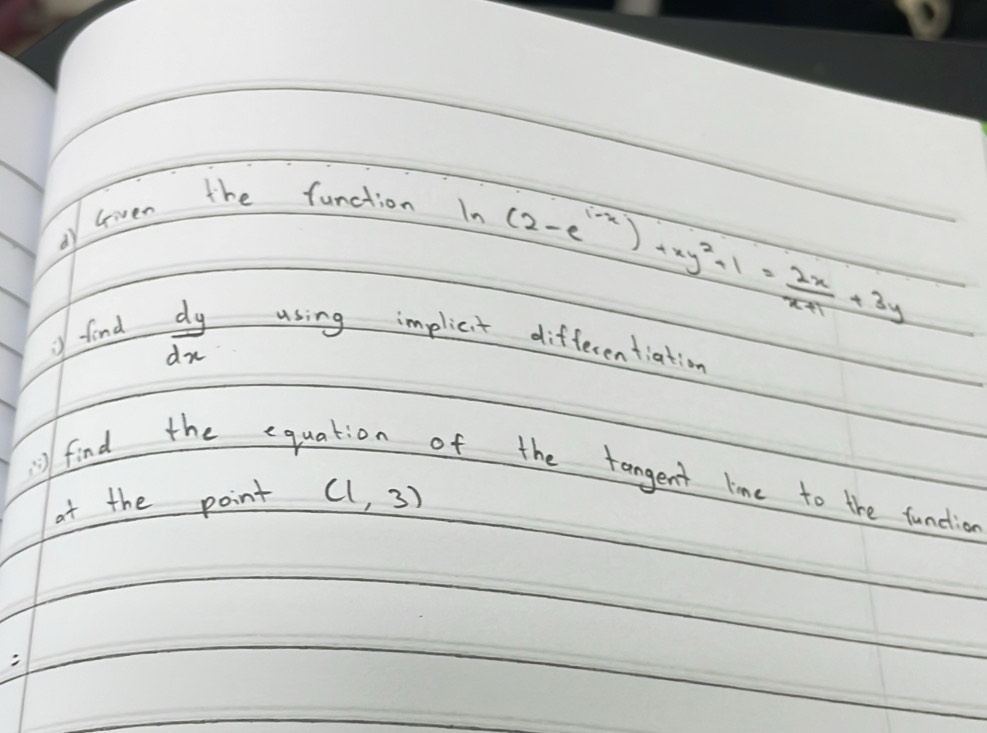 a) Given the function ln (2-e^(1-x)) + xy² + 1 = 2x/(x+1) + 3y
i) find dy/dx using implicit differentiation
ii) find the equation of the tangent line to the function
at the point (1, 3)
=